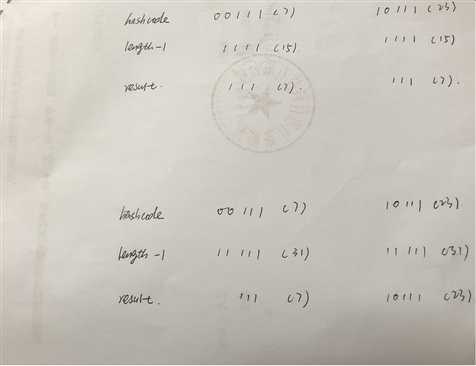 hashcode 00111 (7) 10111 (23)
length-1 1111 (15) 1111 (15)
result. 111 (7). 111 (7).
hashcode 00111 (7) 10111 (23)
length-1 11111 (31) 11111 (31)
result. 111 (7) 10111 (23)